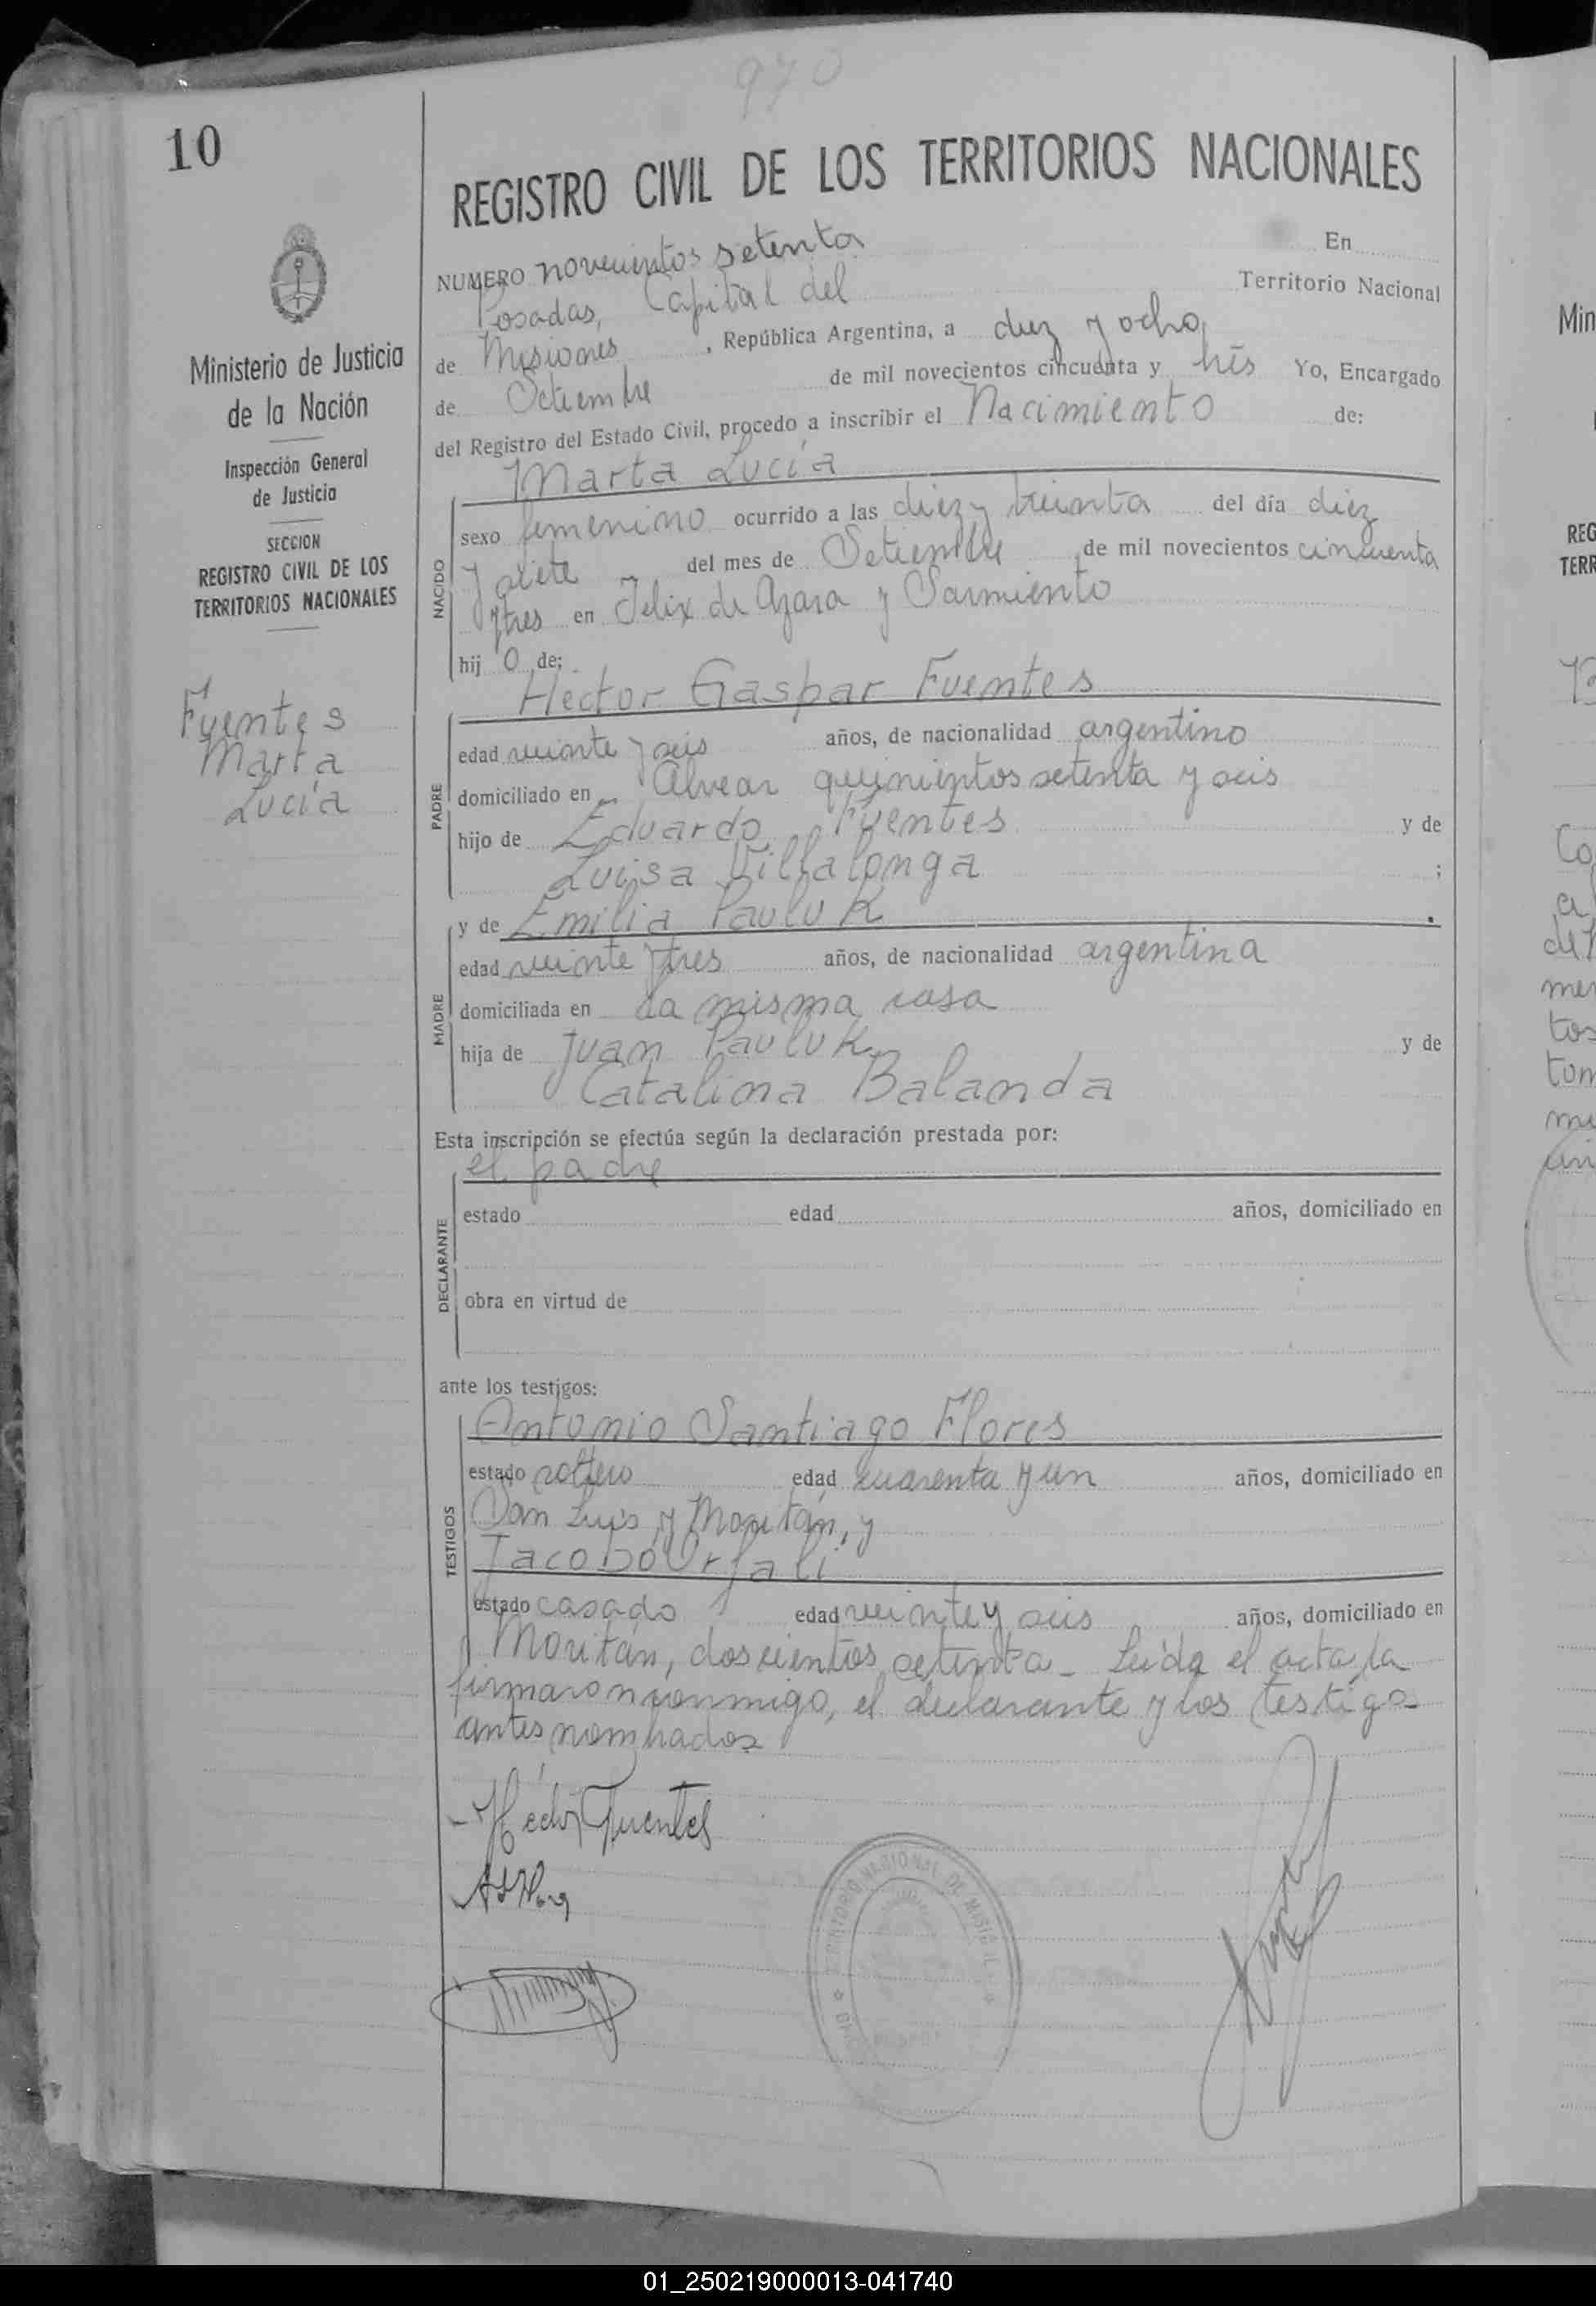 970
10
REGISTRO CIVIL DE LOS TERRITORIOS NACIONALES
NUMERO novecientos setenta En
Posadas, Capital del Territorio Nacional
de Misiones, República Argentina, a diez y ocho
de Setiembre de mil novecientos cincuenta y trés Yo, Encargado
del Registro del Estado Civil, procedo a inscribir el Nacimiento de:
Marta Lucía
sexo femenino ocurrido a las diez y treinta del día diez
y siete del mes de Setiembre de mil novecientos cincuenta
y tres en Felix de Azara y Sarmiento
hij o de:
Hector Gaspar Fuentes
edad veinte y seis años, de nacionalidad argentino
domiciliado en Alvear quinientos setenta y seis
hijo de Eduardo Fuentes y de
Luisa Villalonga ;
y de Emilia Pauluk .
edad veinte y tres años, de nacionalidad argentina
domiciliada en la misma casa
hija de Juan Pauluk y de
Catalina Balanda
Esta inscripción se efectúa según la declaración prestada por:
el padre
estado edad años, domiciliado en
obra en virtud de
ante los testigos:
Antonio Santiago Flores
estado soltero edad cuarenta y un años, domiciliado en
San Luis y Moritán, y
Jacobo Urfali
estado casado edad veinte y seis años, domiciliado en
Moritán, doscientos setenta_ Leída el acta, la
firmaron conmigo, el declarante y los testigo
antes nombrados
Héctor Fuentes
TERRITORIO NACIONAL DE
Ministerio de Justicia
de la Nación
Inspección General
de Justicia
SECCION
REGISTRO CIVIL DE LOS
TERRITORIOS NACIONALES
Fuentes
Marta
Lucía
NACIDO
PADRE
MADRE
DECLARANTE
TESTIGOS
Min
REG
TERR
Co
a
del
mer
tos
tom
01_250219000013-041740